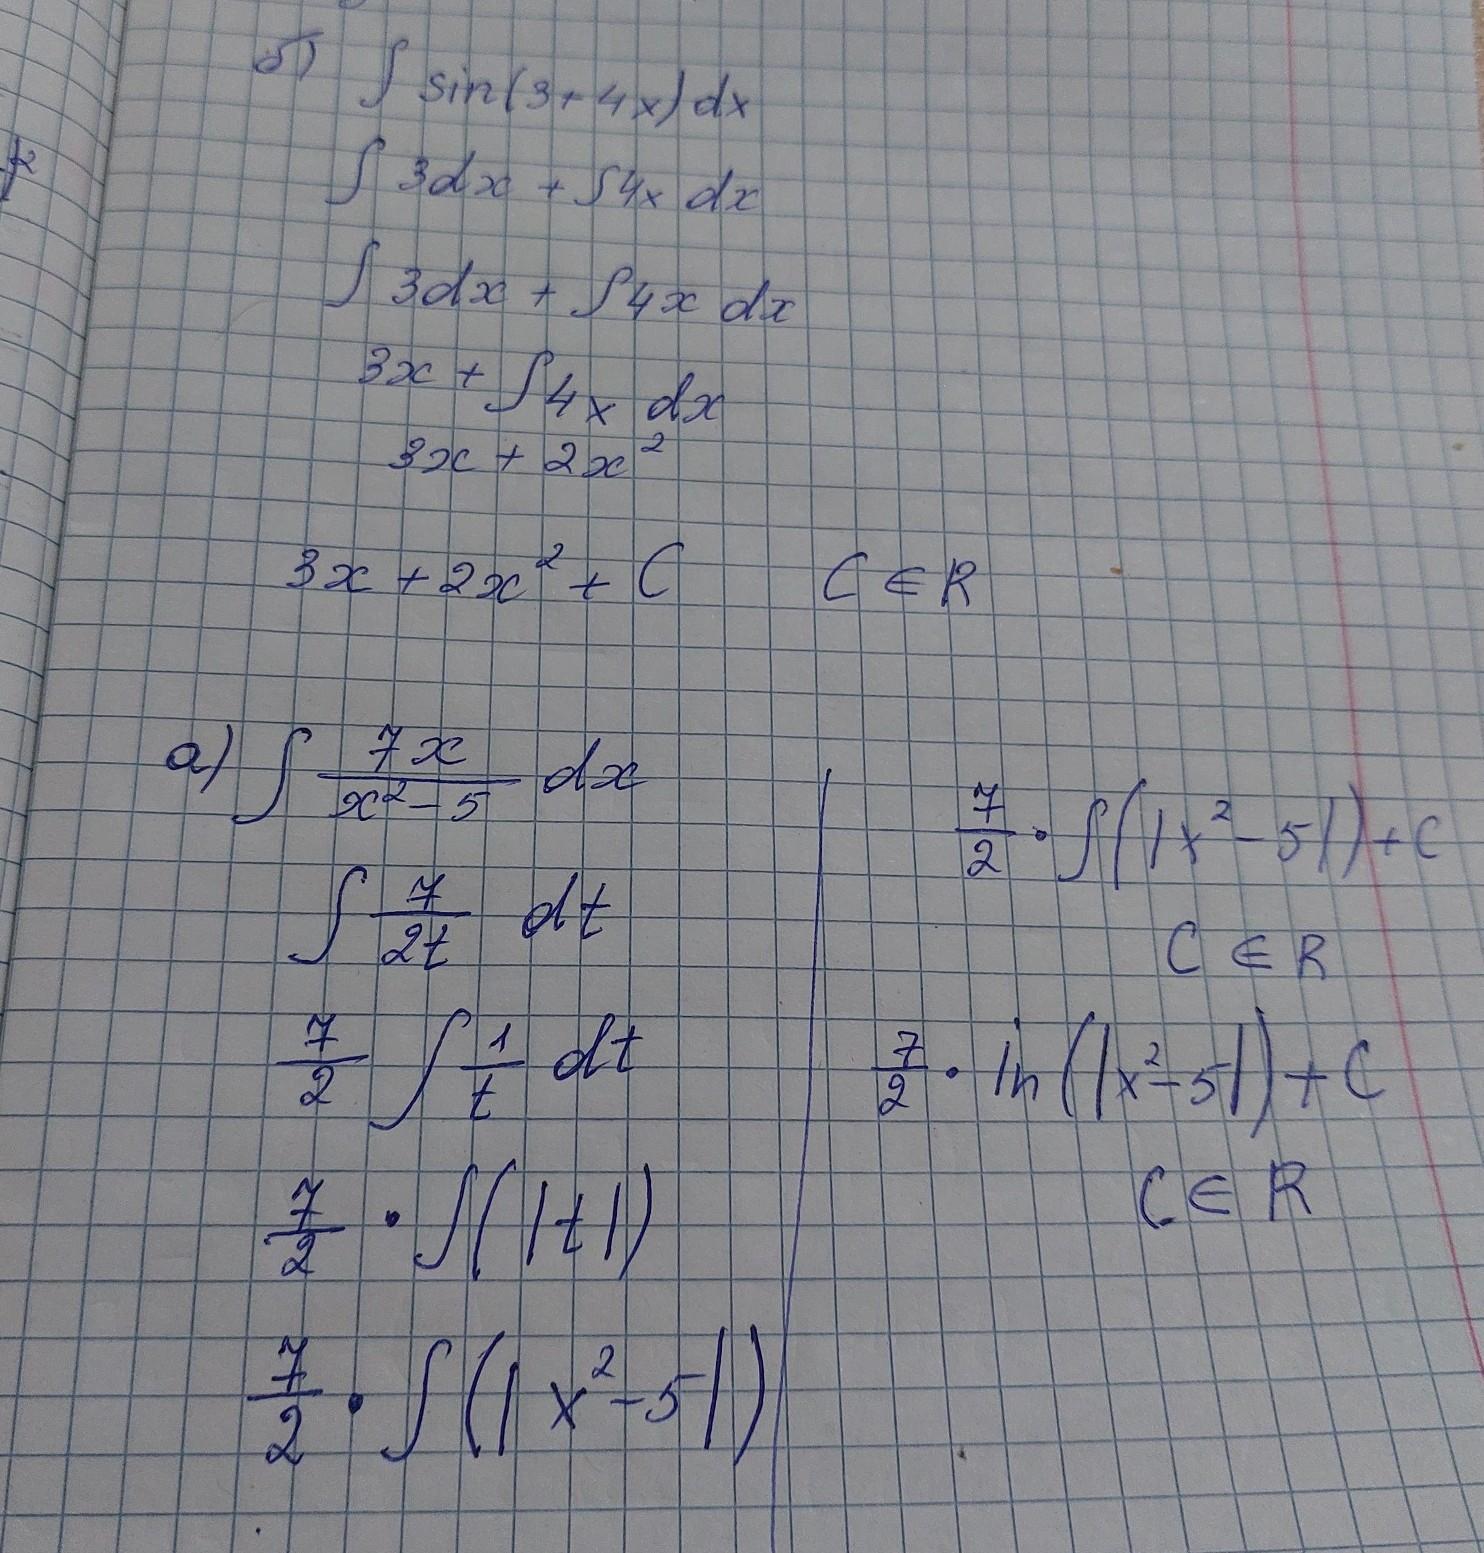 б) ∫ sin(3+4x)dx
∫ 3dx + ∫4x dx
∫ 3dx + ∫4x dx
3x + ∫4x dx
3x + 2x²
3x + 2x² + C C ∈ R
a) ∫ 7x/(x²-5) dx
∫ 7/(2t) dt
7/2 ∫ 1/t dt
7/2 · ∫(|t|)
7/2 · ∫(|x²-5|)
7/2 · ∫(|x²-5|)+C
C ∈ R
7/2 · ln(|x²-5|)+C
C ∈ R